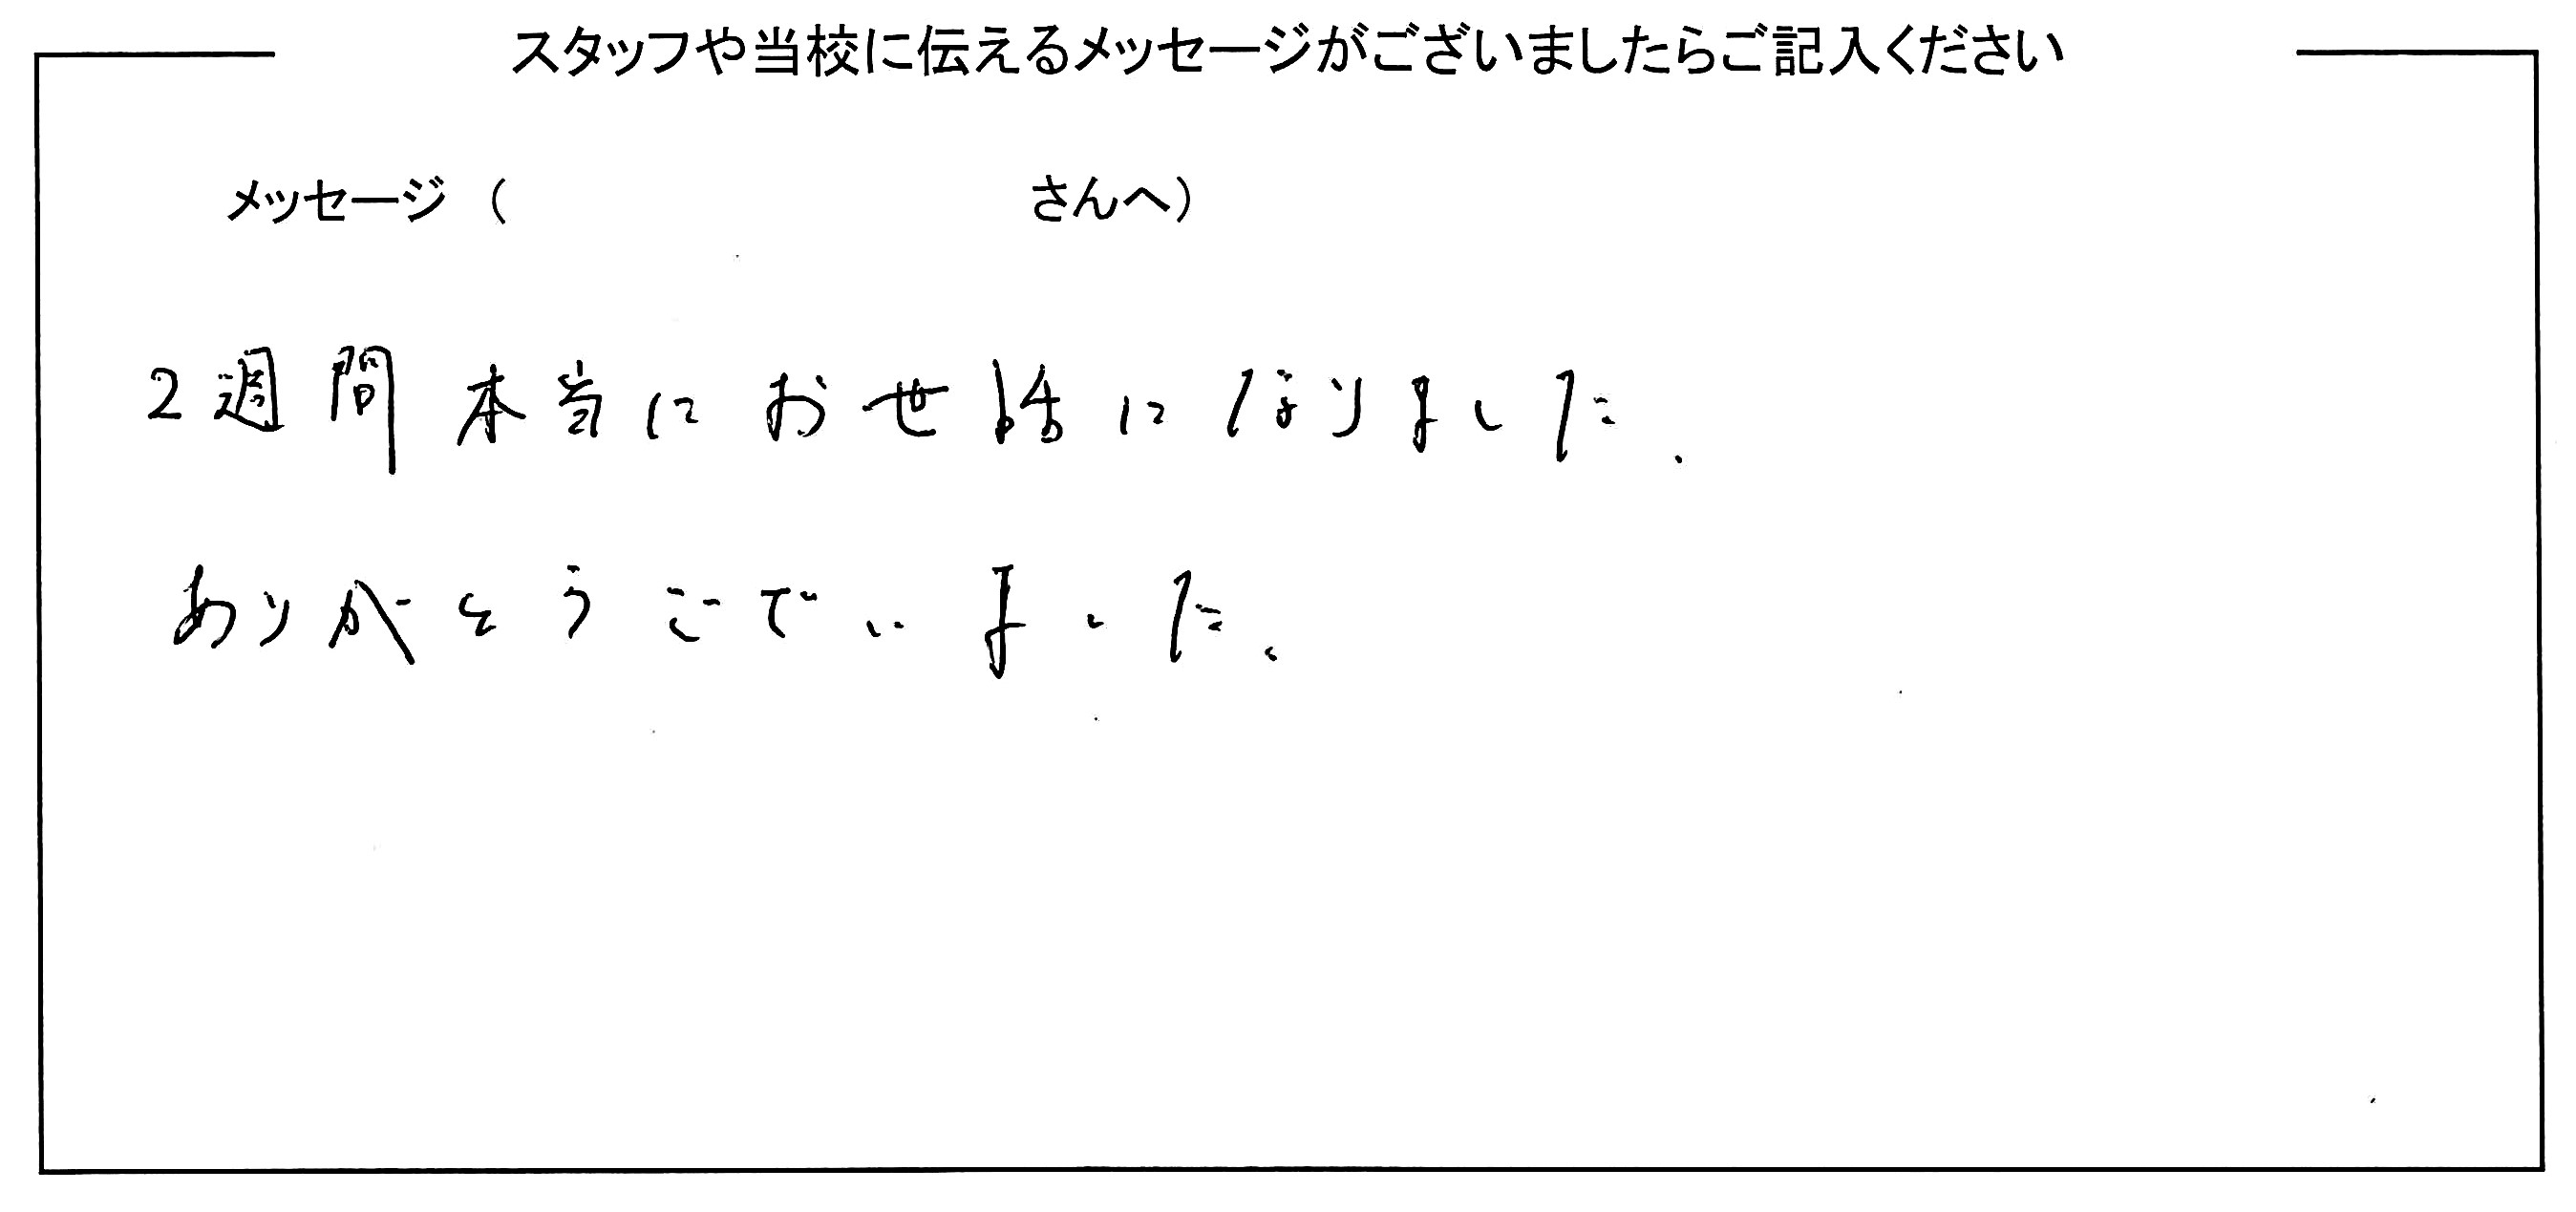 スタッフや当校に伝えるメッセージがございましたらご記入ください
メッセージ（　　　　　　　　　　さんへ）
2週間本当にお世話になりました.
ありがとうございました。